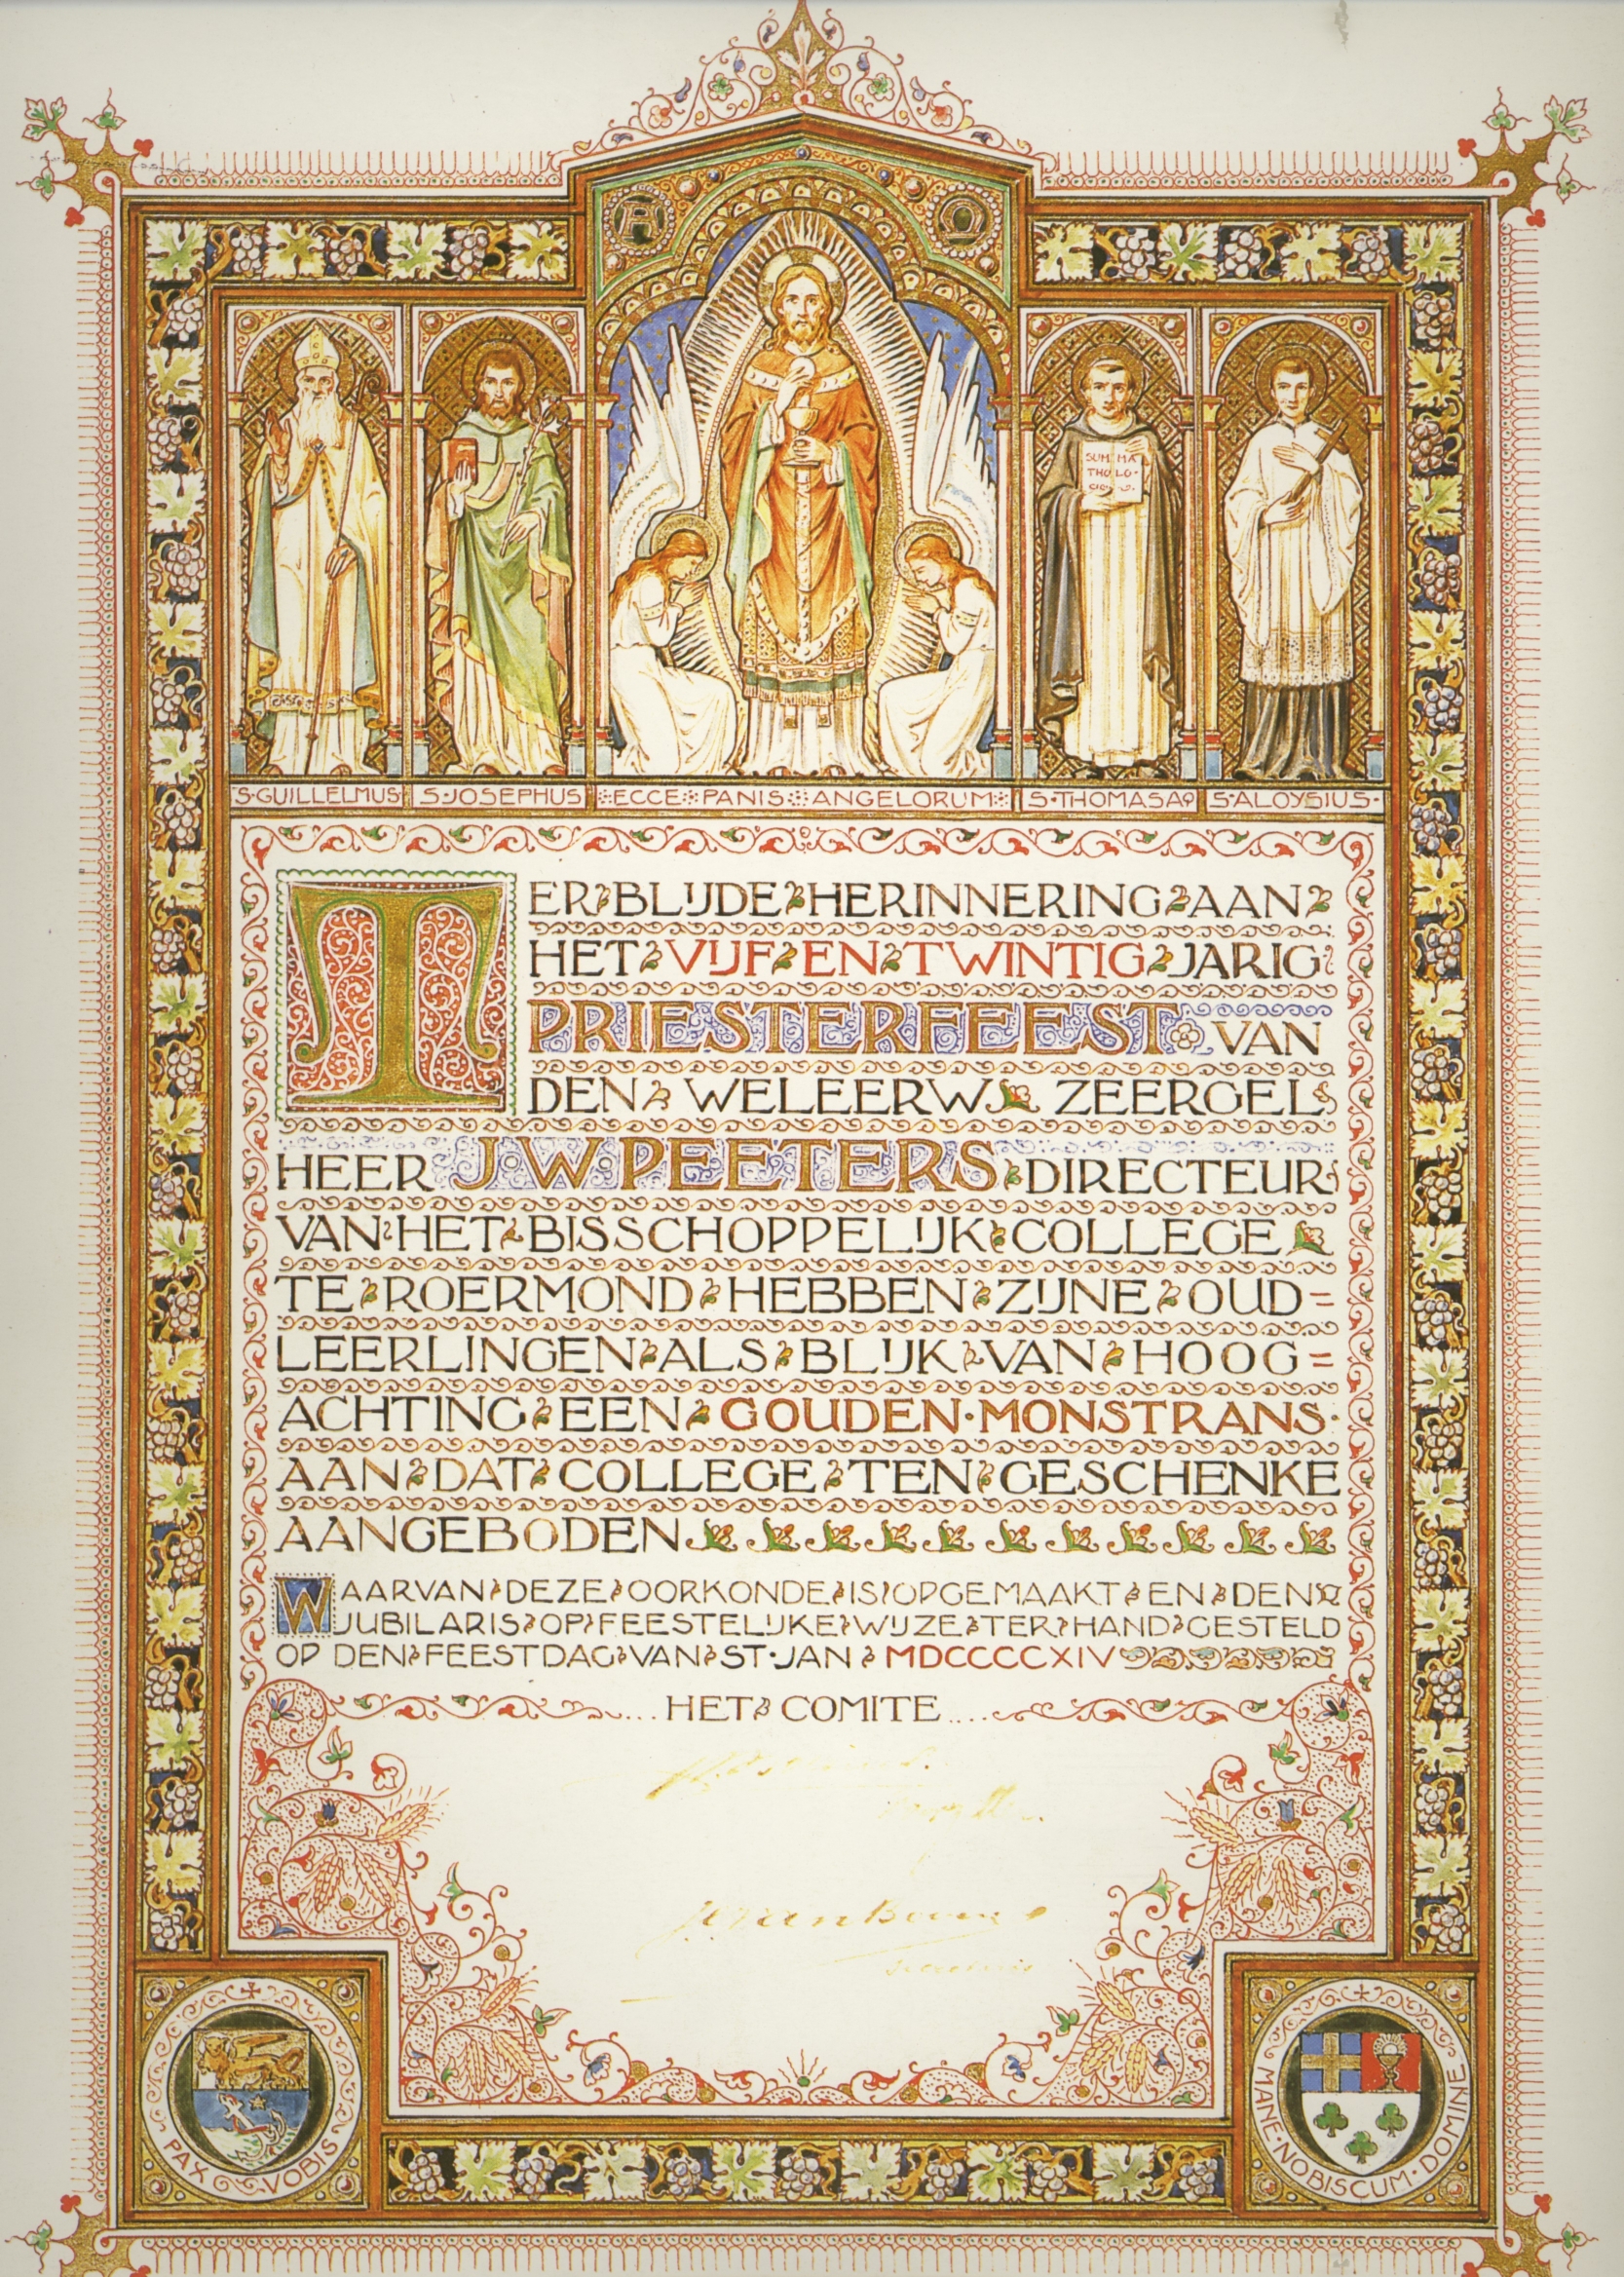 A Ω
SUMMA
THOLO
S·GUILLELMUS S·JOSEPHUS ECCE PANIS ANGELORUM S·THOMAS AQ S·ALOYSIUS
TER BLIJDE HERINNERING AAN
HET VIJF EN TWINTIG JARIG
PRIESTERFEEST VAN
DEN WELEERW ZEERGEL
HEER J W PEETERS DIRECTEUR
VAN HET BISSCHOPPELIJK COLLEGE
TE ROERMOND HEBBEN ZIJNE OUD=
LEERLINGEN ALS BLIJK VAN HOOG=
ACHTING EEN GOUDEN·MONSTRANS·
AAN DAT COLLEGE TEN GESCHENKE
AANGEBODEN
WAARVAN DEZE OORKONDE IS OPGEMAAKT EN DEN
JUBILARIS OP FEESTELIJKE WIJZE TER HAND GESTELD
OP DEN FEESTDAG VAN ST·JAN MDCCCCXIV
HET COMITE
PAX VOBIS
MANE·NOBISCUM·DOMINE